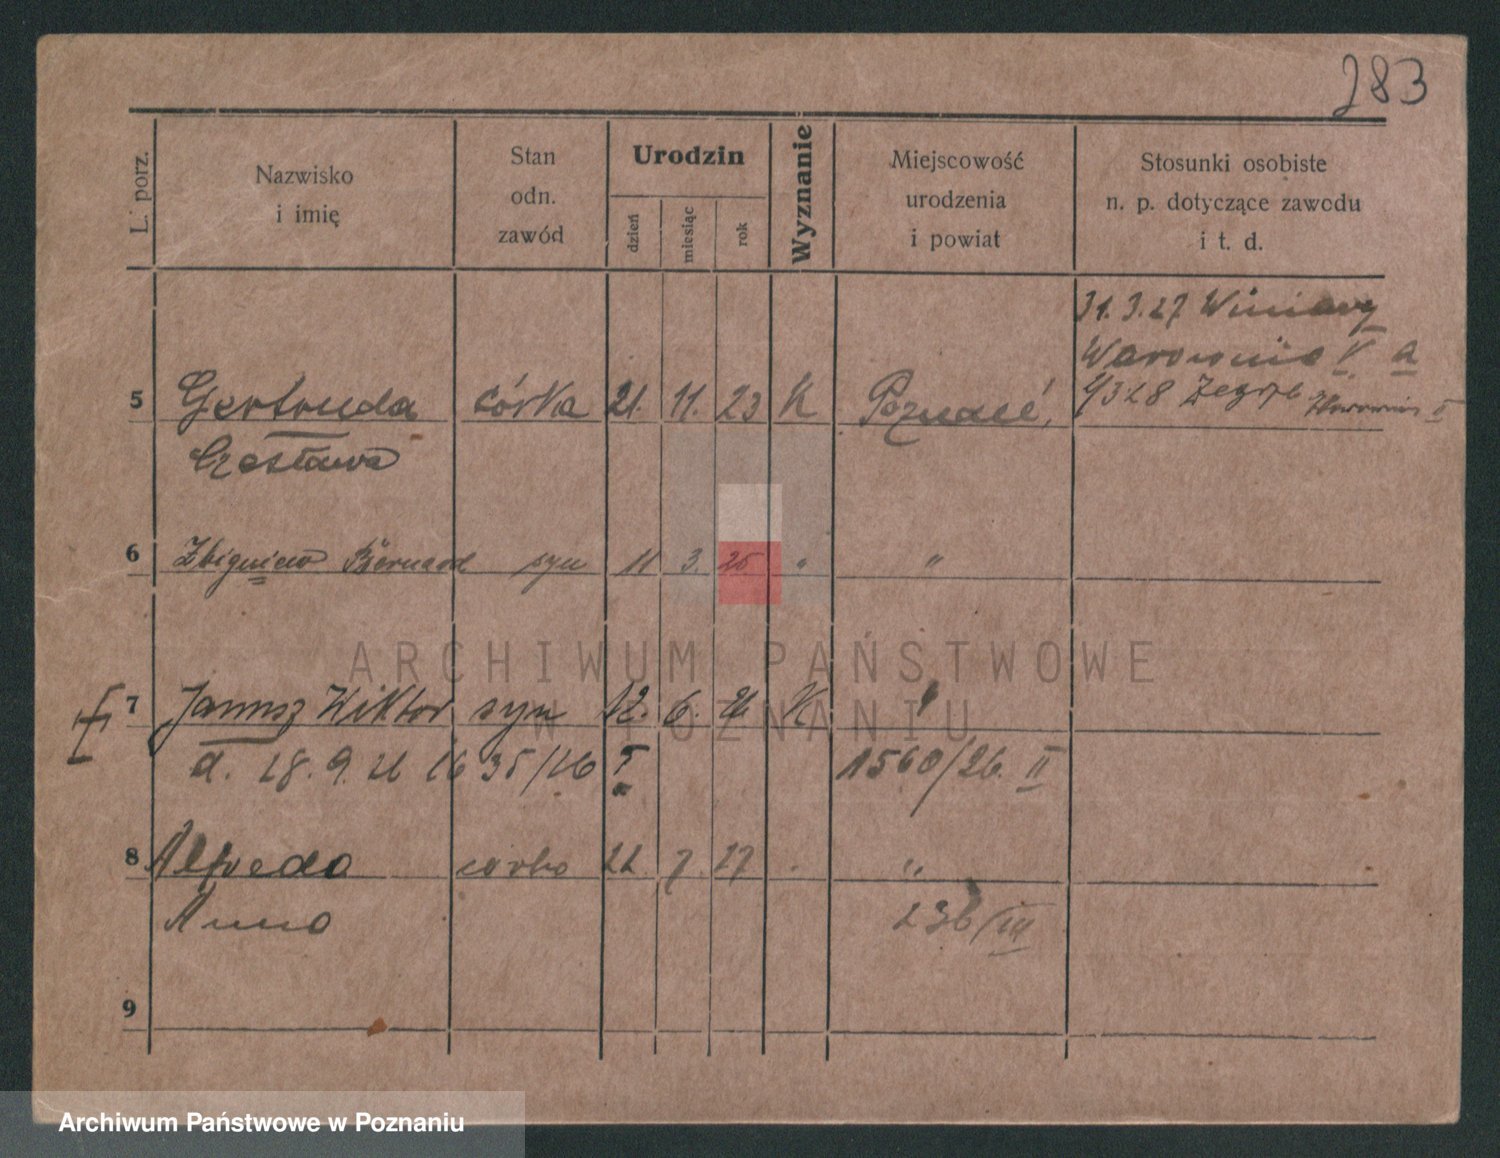 283
L. porz.
Nazwisko
i imię
Stan
odn.
zawód
Urodzin
dzień
miesiąc
rok
Wyznanie
Miejscowość
urodzenia
i powiat
Stosunki osobiste
n. p. dotyczące zawodu
i t. d.
31.3.27 Winiary
Warownia V a
5 Gertruda córka 21. 11. 23 K Poznań,
9328 Zegrze Warownia I
Czesława
6 Zbigniew Bernard syn 11 3. 25 " "
ARCHIWUM PAŃSTWOWE
W POZNANIU
7 Janusz Wiktor syn 12. 6. 26 K "
d. 18. 9. 26 1635/26 1560/26. II
8 Alfreda corka 22 7 27 . "
Anna 236/III
9
Archiwum Państwowe w Poznaniu